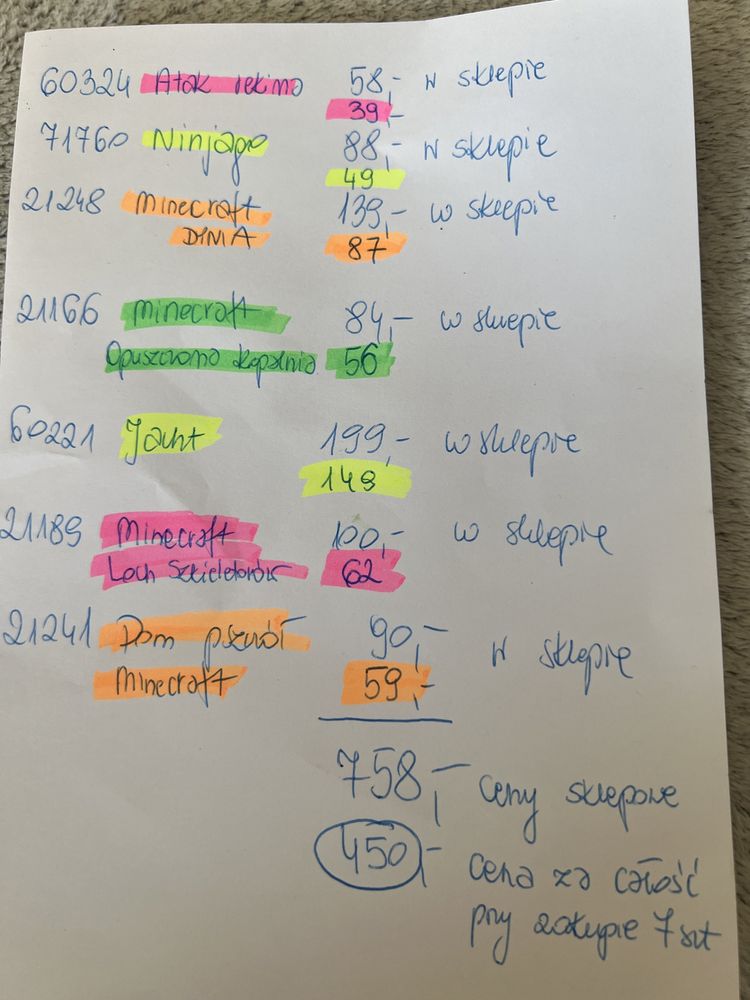 60324 Atak rekina 58,- w sklepie
39,-
71760 Ninjago 88,- w sklepie
49
21248 Minecraft 139,- w sklepie
DYNIA 87
21166 minecraft 84,- w sklepie
Opuszczona Kopalnia 56
60221 Jacht 199,- w sklepie
149
21189 Minecraft 100,- w sklepie
Loch Szkieletorów 62
21241 Dom pszczół 90,- w sklepie
Minecraft 59,-
758,- ceny sklepowe
450,- cena za całość
przy zakupie 7 szt